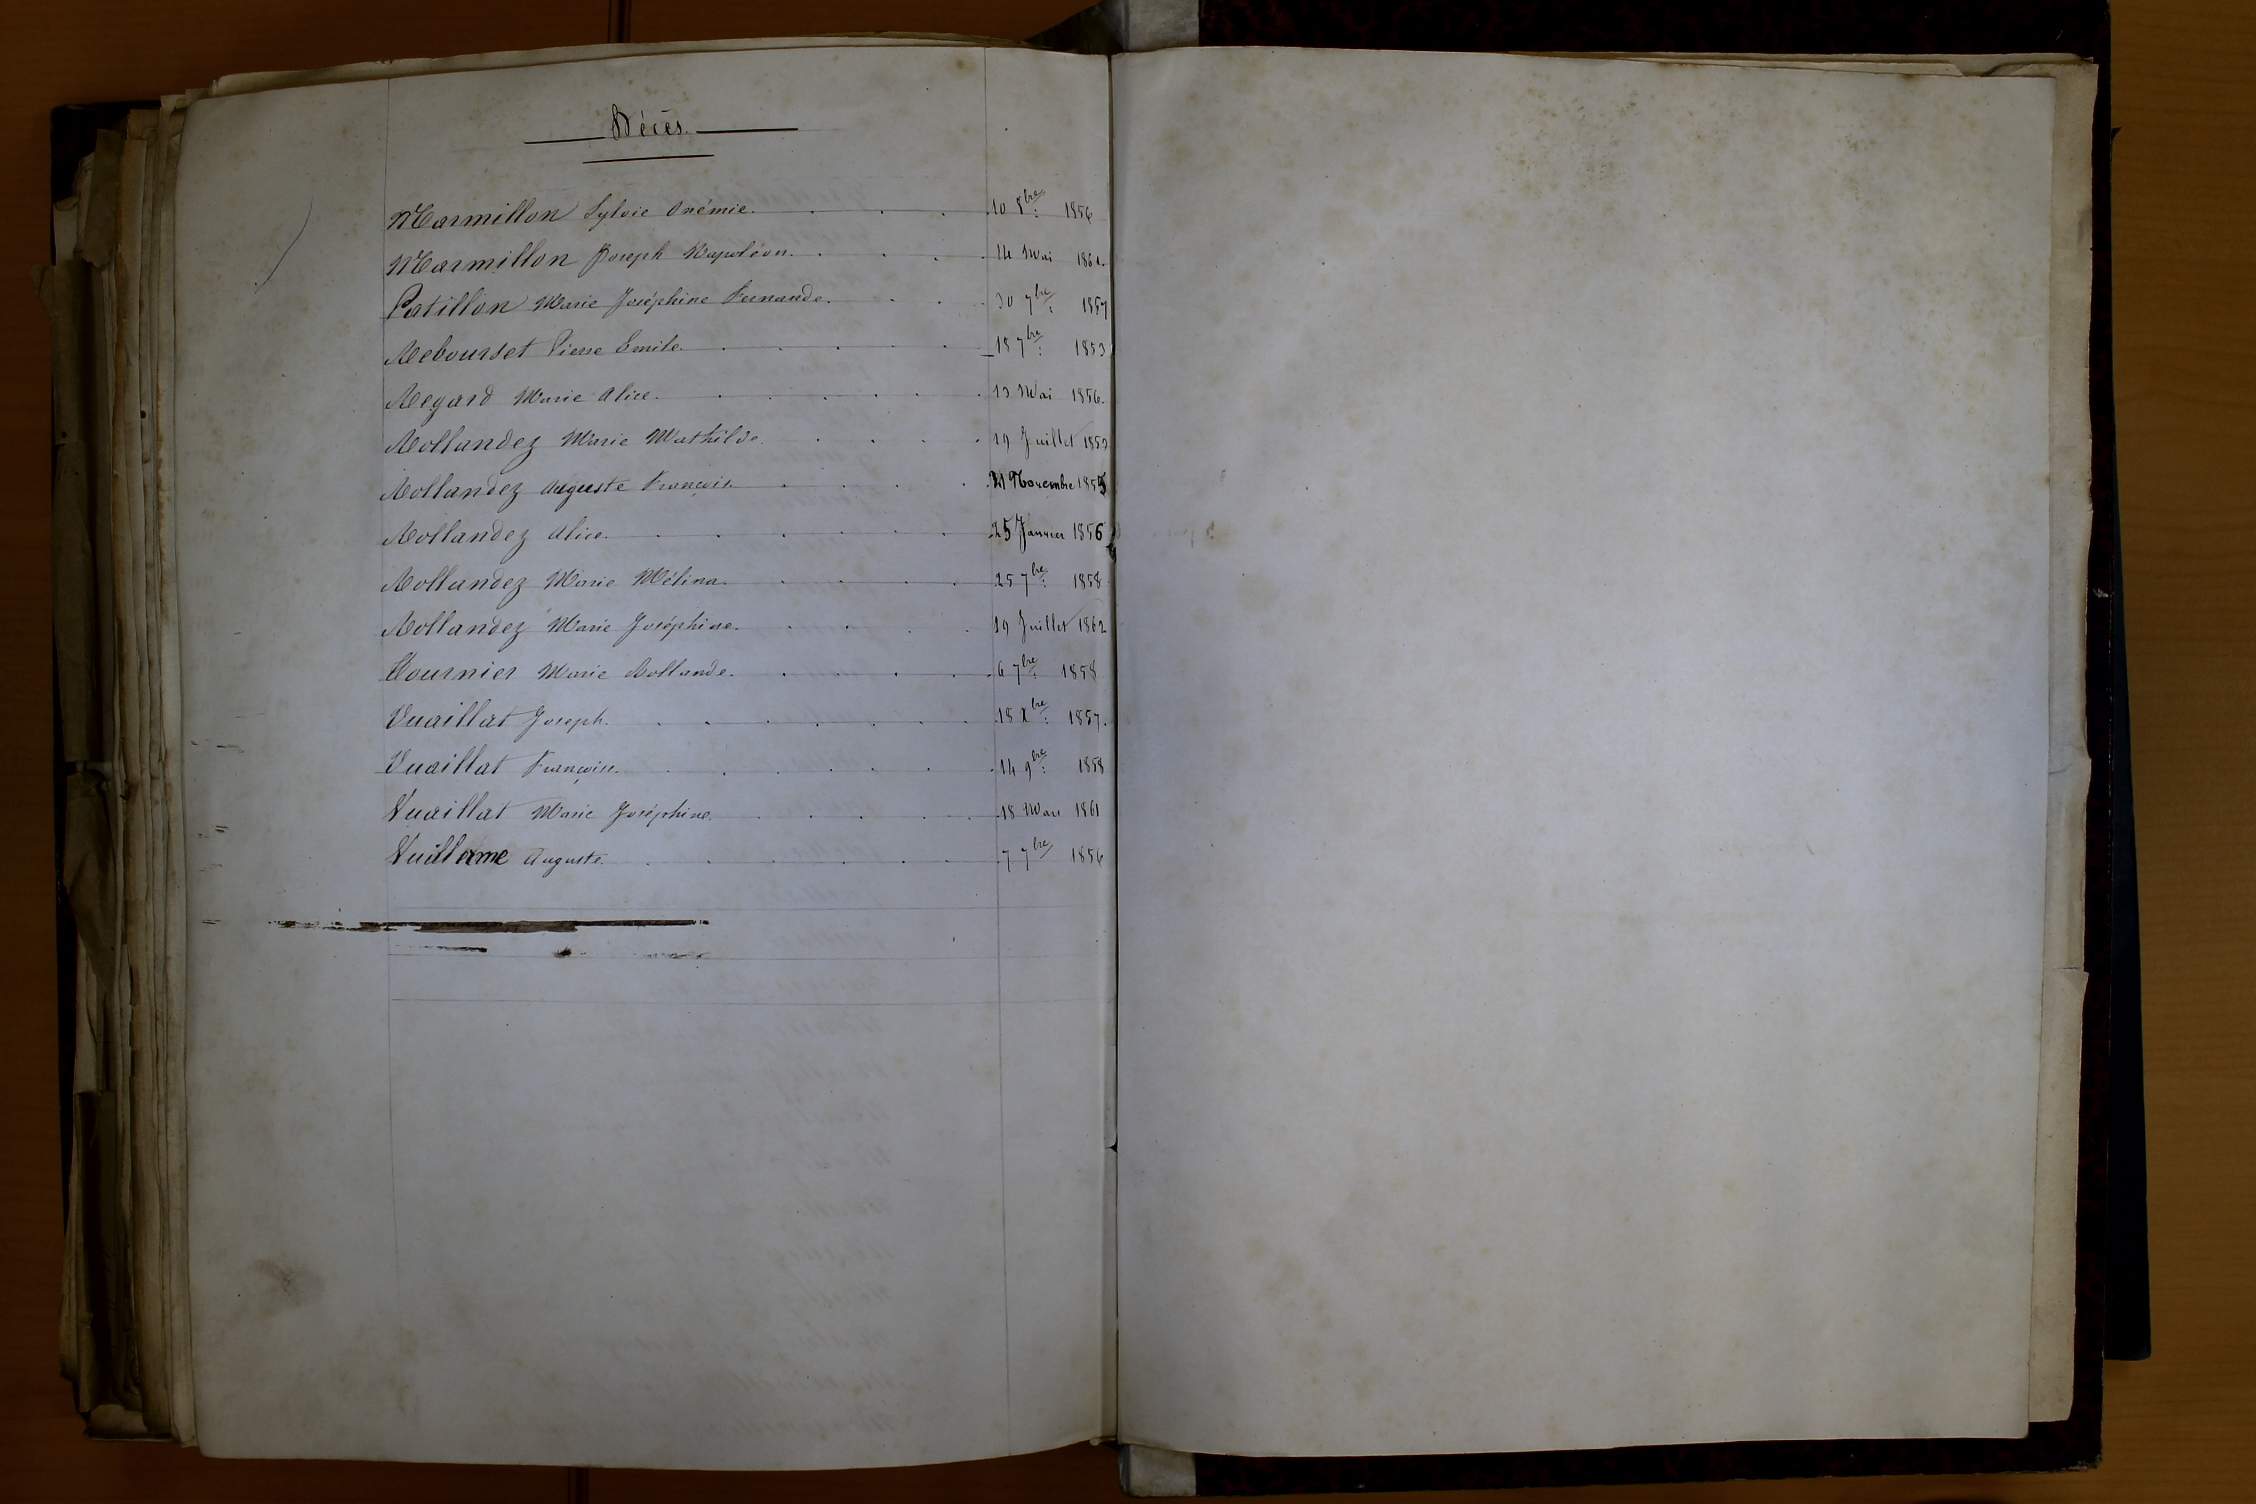 Décès.
Marmillon Sylvie Onémie. 10 8bre 1856
Marmillon Joseph Napoléon. 14 Mai 1861.
Patillon Marie Joséphine Fernande. 30 7bre 1857
Rebourset Pierre Emile. 18 7bre 1853
Regard Marie Alice. 13 Mai 1856.
Rollandez Marie Mathilde. 19 Juillet 1853
Rollandez Auguste François. 21 Novembre 1855
Rollandez Alice. 25 Janvier 1856
Rollandez Marie Mélina. 25 7bre 1858
Rollandez Marie Joséphine. 19 Juillet 1862
Tournier Marie Rollande. 6 7bre 1858
Vuaillat Joseph. 18 Xbre 1857.
Vuaillat Françoise. 14 9bre 1858
Vuaillat Marie Joséphine. 18 Mars 1861
Vuillerme Auguste. 7 7bre 1856